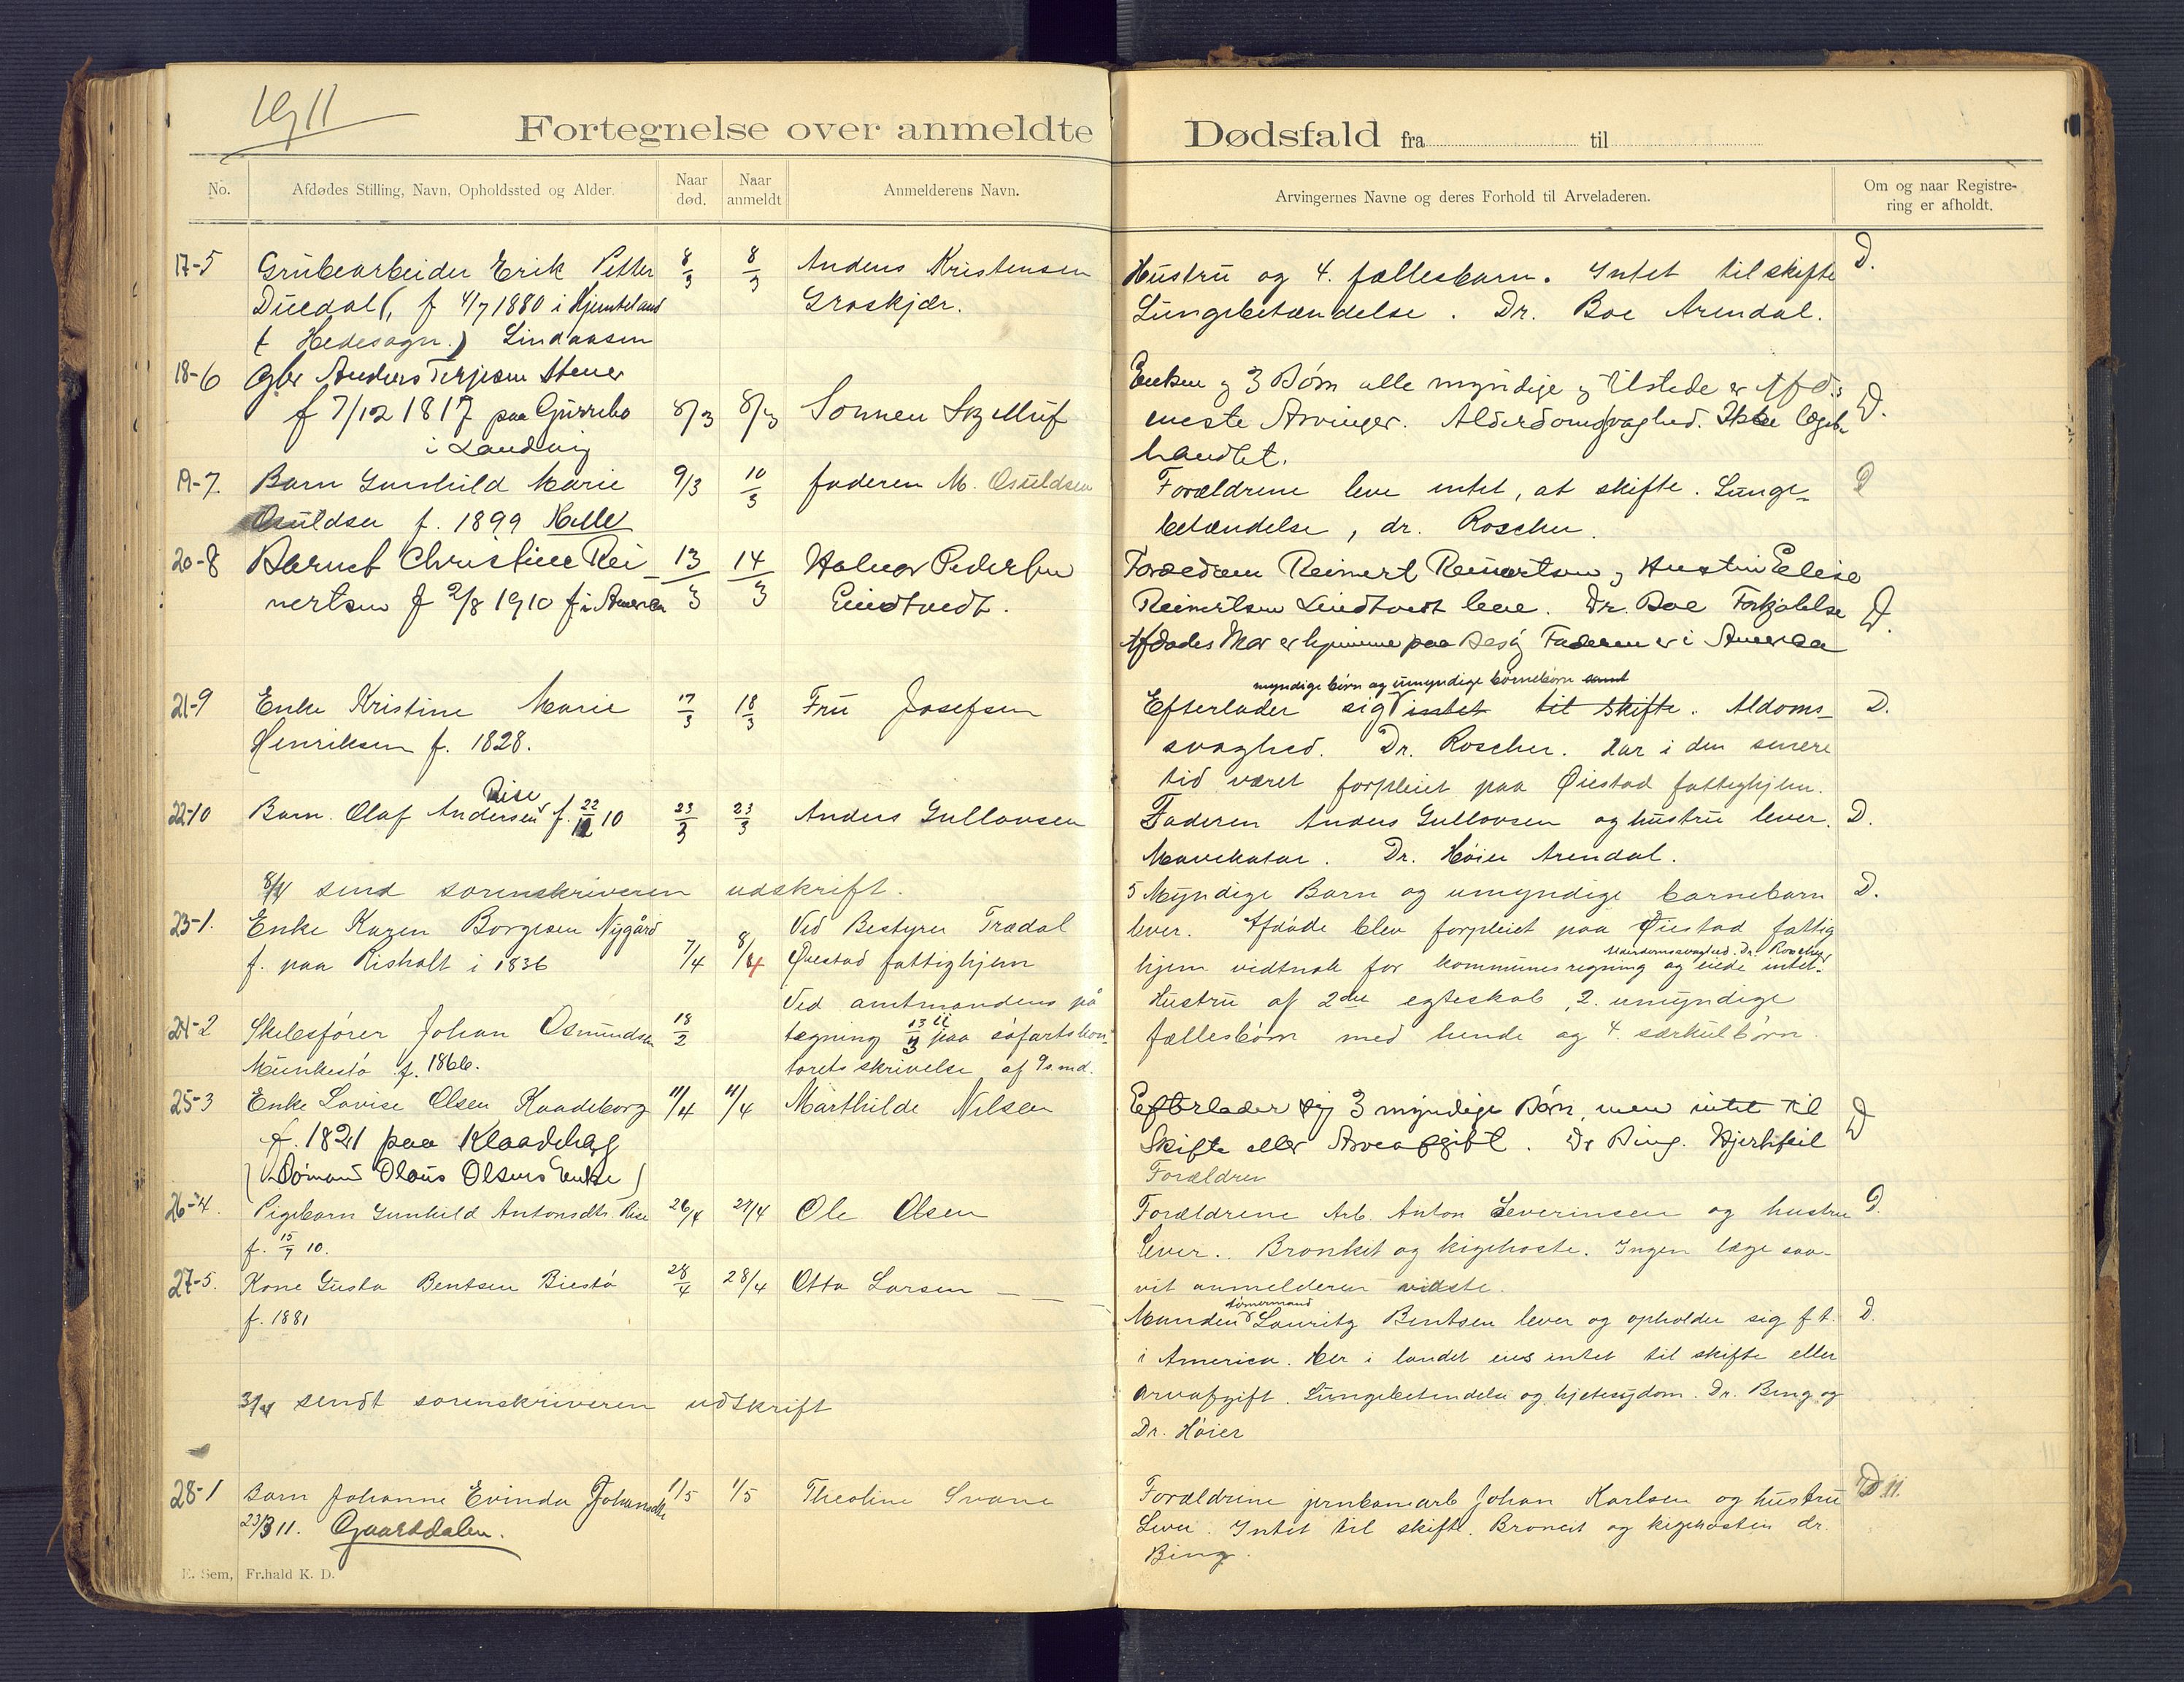 1911
Fortegnelse over anmeldte Dødsfald fra til
No. Afdødes Stilling, Navn, Opholdssted og Alder. Naar død. Naar anmeldt Anmelderens Navn. Arvingernes Navne og deres Forhold til Arveladeren. Om og naar Registrering er afholdt.
17-5 Grubearbeider Erik Petter 8/3 8/3 Anders Kristensen
Duedal (, f 4/7 1880 i Groskjær.
( Hedesogn.) Lindaasen
Hustru og 4. fællesbarn. Intet til skifte D.
Lungebetændelse. Dr. Boe Arendal.
18-6 Gbr Anders Terjesen Stener
f 7/12 1817 paa Gurrebo 8/3 8/3 Sønnen
i Landvig
Enken og 3 Børn alle myndige og tilstede er Afd:s
næste Arvinger. Alderdomssvaghed. Ikke læge- D.
handlet.
19-7. Barn Gunhild Marie 9/3 10/3 faderen M. Osuldsen
Osuldsen f. 1899
Forældrene leve intet, at skifte. Lunge-
betændelse, dr. Roscher.
20-8 Barnet Christine Rei- 13/3 14/3 Halvor Pedersen
nertsen f 2/8 1910 f i America Lindtvedt.
Reinert Reinertsen og Hustru Elise
Reinertsen Lindtvedt leve. Dr. Boe Forkjølelse D.
Afdødes Mor er hjemme paa Besøg Faderen er i America
21-9 Enke Kristine Marie 17/3 18/3 Fru Josefsen
Henriksen f. 1828.
myndige børn og umyndige børnebørn samt
Efterlader sig intet til skifte. Aldoms- D.
svaghed. Dr. Roscher. Har i den senere
tid været forpleiet paa Øiestad fattighjem.
Rise
22-10 Barn. Olaf Andersen f. 22/12 10 23/3 23/3 Anders Gullovsen
Faderen Anders Gullovsen og hustru lever. D.
Mavekatar. Dr. Høier Arendal.
8/4 send sorenskriveren udskrift.
23-1. Enke Karen Borgesen Nygård Ved Bestyrer Trædal
f. paa Risholt i 1836 7/4 8/4 Øiestad fattighjem
5 Myndige Barn og umyndige barnebarn D.
lever. Afdøde blev forpleiet paa Øiestad fattig
Alderdomssvaghed. Dr. Roscher
hjem vidtnok for kommunes regning og eiede intet.
Ved amtmandens på
24-2 Skibsfører Johan Osmundsen 18/2 tegning paa søfartskon-
Munkesø f. 1866. torets skrivelse af
Hustru af 2det egteskab, 2. umyndige
fællesbørn med hende og 4. særkulbørn.
25-3 Enke Lovise Olsen Kaadeborg 11/4 11/4 Marthilde Nilsen
f. 1821 paa Klaadeborg
(Sømand Olaus Olsens Enke)
Efterlader sig 3 myndige Børn, men intet til
Skifte eller Arveafgift. Dr Bing. Hjertefeil D
Forældren
26-4. Pigebarn Gunhild Antonsdtr. Rise 26/4 27/4 Ole Olsen
f. 15/9 10.
Forældrene Arb. Anton Severinsen og hustru D.
lever. Bronkit og kigehoste. Ingen læge saa-
vit anmelderen vidste.
27-5. Kone Gusta Bentsen Biestø 28/4 28/4 Otto Larsen
f. 1881
tømermand
Manden Lauritz Bentsen lever og opholder sig f t. D.
i America. Her i landet eies intet til skifte eller
arvafgift. Lungebetendelse og hjetesygdom. Dr. Bing og
Dr. Høier
sendt sorenskriveren udskrift
28-1 Barn Johanne Evinda Johansdtr 1/5 1/5 Theoline Svane
23/3 11. Gaarddalen.
Forældrene jernbanearb Johan Karlsen og hustru D.
Lever. Intet til skifte. Broncit og kigehosten dr.
Bing.
E. Sem, Fr.hald K. D.